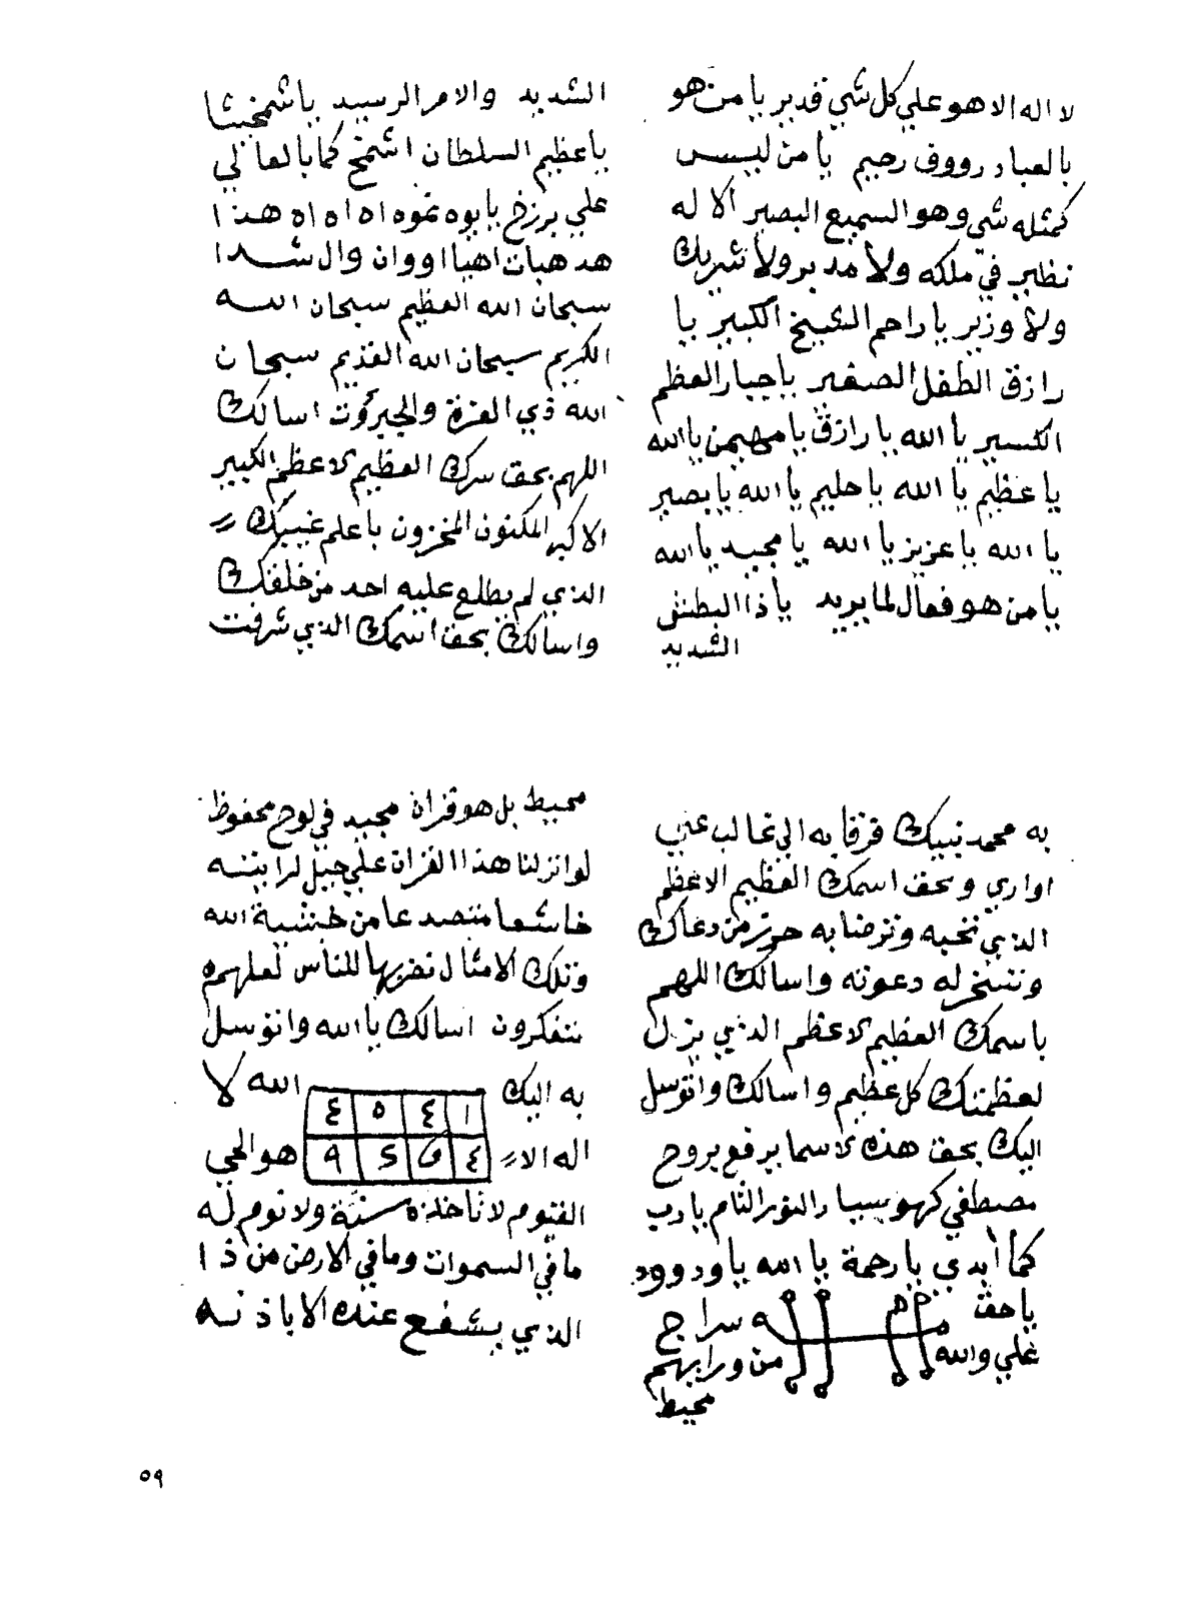 لا اله الا هو علي كل شي قدير يا من هو
بالعباد رووف رحيم يا من ليس
كمثله شي وهو السميع البصير الا له
نظير في ملكه ولا مدبر ولا شريك
ولا وزير يا راحم الشيخ الكبير يا
رازق الطفل الصغير يا جبار العظم
الكسير يا الله يا رازق يا مهيمن يا الله
يا عظيم يا الله يا حليم يا الله يا بصير
يا الله يا عزيز يا الله يا مجيد يا الله
يا من هو فعال لما يريد يا ذا البطش
الشديد
الشديد والامر الرسيد يا شمخيثا
يا عظيم السلطان اشمخ كما بالعالي
علي برزخ يا يوه نموه اه اه اه هذا
هد هبات اهيا اووان وال شدا
سبحان الله العظيم سبحان الله
الكريم سبحان الله القديم سبحان
الله ذي العزة والجبروت اسالك
اللهم بحق سرك العظيم الاعظم الكبير
الاكبر المكنون المخزون يا علم غيبك
الذي لم يطلع عليه احد من خلقك
واسالك بحق اسمك الذي شرفت
به محمد نبيك فرقا به الي غالب عني
اواري وبحق اسمك العظيم الاعظم
الذي تحبه وترضا به حرز من دعاك
وتسخر له دعوته واسالك اللهم
باسمك العظيم الاعظم الذي يزل
لعظمتك كل عظيم واسالك واتوسل
اليك بحق هذه الاسما يرفع بروح
مصطفي كهو يسبا ر النور التام يا رب
كما ابدي يا رحمة يا الله يا ودوود
يا حق
علي والله
سراج
من ورايهم
محيط
محيط بل هو قران مجيد في لوح محفوظ
لو انزلنا هذا القران علي جبل لرايته
خاشعا متصدعا من خشية الله
وتلك الامثال نضربها للناس لعلهم
يتفكرون اسالك يا الله واتوسل
به اليك
١ ٤ ٥ ٤
الله لا
اله الا
هو الحي
القيوم لا تاخذه سنة ولا نوم له
ما في السموات وما في الارض من ذا
الذي يشفع عنده الا باذنه
٥٩